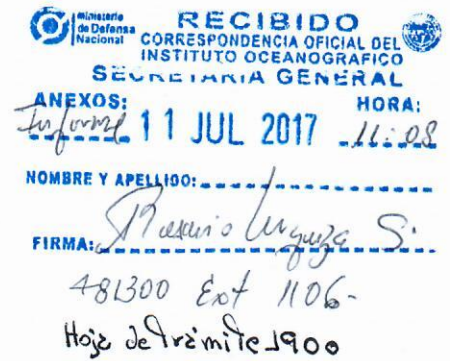 Ministerio
de Defensa
Nacional
RECIBIDO
CORRESPONDENCIA OFICIAL DEL
INSTITUTO OCEANOGRAFICO
SECRETARIA GENERAL
ANEXOS: HORA:
Informe 11 JUL 2017 11:08
NOMBRE Y APELLIDO:
FIRMA: Rosario S.
481300 Ext 1106-
Hoja de Trámite 1900